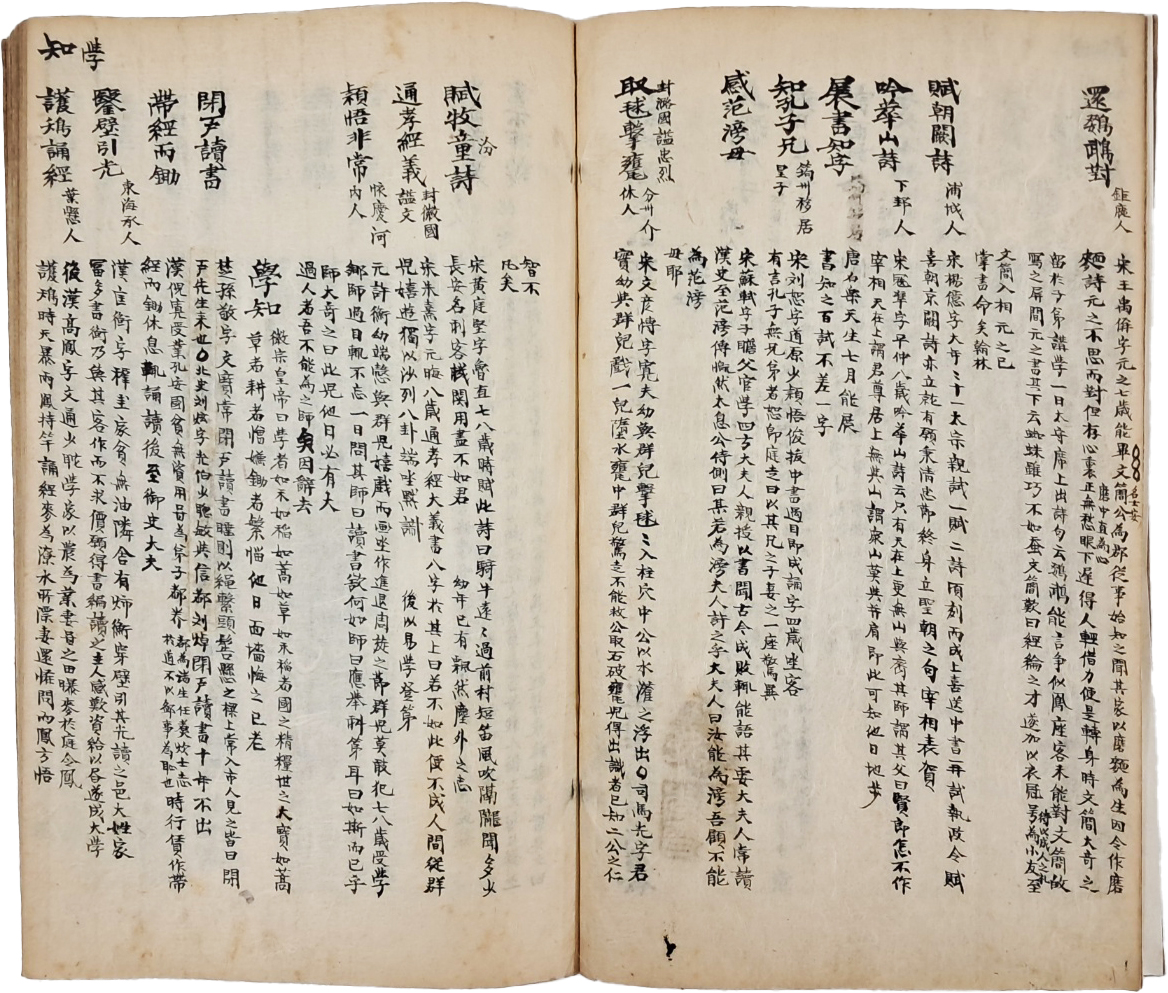 還鸚鵡對 鉅鹿人
宋王禹偁字元之七歲能單文簡公為郡從事始知之聞其家以磨麵為生因令作磨
名士安
麵詩元之不思而對但有心裏正無愁眼下遲得人輕借力便是轉身時文簡大奇之
應中直為心
留於子弟講學一日太守席上出詩句云鸚鵡能言爭似鳳座客未能對文簡故
寫之屏間元之書其下云蜘蛛雖巧不如蚕文簡歎曰經綸之才遂加以衣冠号為小友至
待以成人之礼
文簡入相元之已
掌書命矣翰林
賦朝闕詩 浦城人
宋楊億字大年年十一太宗親試一賦二詩頃刻而成上喜送中書再試執政令賦
喜朝京闕詩亦立就有願秉清忠節終身立聖朝之句宰相表賀
吟華山詩 下邽人
宋寇準字平仲八歲吟華山詩云只有天在上更無山與齊其師謂其父曰賢郎怎不作
宰相天在上謂君尊居上無與山謂眾山莫與并肩即此可知他日地步
展書知字
唐白樂天生七月能展
書知之百試不差一字
知孔子兄 筠州移居 呈子
宋刘恕字道原少穎悟俊拔中書過目即成誦字四歲坐客
有言孔子無兄弟者恕即應之曰以其兄之子妻之一座驚異
感范滂母
宋蘇軾字子瞻父官學四方大夫人親授以書聞古今成敗輒能語其要大夫人常讀
漢史至范滂傳慨然太息公侍側曰某若為滂夫人許之乎大夫人曰汝能為滂吾顧不能
為范滂
母耶
取毬擊甕 封潞國謚忠烈 分州介休人
宋文彥博字寬夫幼與群兒擊毬毬入柱穴中公以水灌之浮出〇司馬光字君
實幼與群兒戲一兒墮水甕中群兒驚走不能救公取石破甕兒得出識者已知二公之仁
智不
凡矣
賦牧童詩 汾
宋黃庭堅字魯直七八歲時賦此詩曰騎牛遠遠過前村短笛風吹隔隴聞多少
長安名利客機関用盡不如君 幼年已有輒然塵外之志
通孝經義 封徽國謚文
宋朱熹字元晦八歲通孝經大義書八字於其上曰若不如此便不成人間從群
兒嬉遊獨以沙列八卦端坐默識 後以易學登第
穎悟非常 懷慶河內人
元許衡幼端愨與群兒嬉戲而画坐作進退周旋之節群兒莫敢犯七八歲受學
鄉師過目輒不忘一日問其師曰讀書欲何如師曰應举科第耳曰如斯而已乎
師大奇之曰此兒他日必有大
過人者吾不能為之師矣因辭去
學知 徽宗皇帝曰學者如禾如稻如蒿如草如禾稻者國之精糧世之大寶如蒿
草者耕者憎嫌鋤者繁惱他日面墻悔之已老
學
知
閉戶讀書
楚孫敬字文寶常閉戶讀書睡則以繩繫頭髻懸之樑上常入市人見之皆曰閉
戶先生來也〇北史刘炫字光伯少聰敏與信都刘焯閉戶讀書十年不出
帶經而鋤
漢倪寬受業孔安國貧無資用甞為弟子都养 都為諸生任㸑炊士志於道不以鄙事為恥也 時行賃作帶
經而鋤休息輒誦讀後至御史大夫
鑿壁引光 東海承人
漢匡衡字稚圭家貧無油隣舍有燭衡穿壁引其光讀之邑大姓家
冨多書衡乃與其客作而不求價願得書編讀之主人感歎資給以昬遂成大學
護鷄誦經 葉懸人
後漢高鳳字文通少耽學家以農為業妻甞之田曝麥於庭令鳳
護鷄時天暴雨鳳持竿誦經麥為潦水所漂妻還恠問而鳳方悟